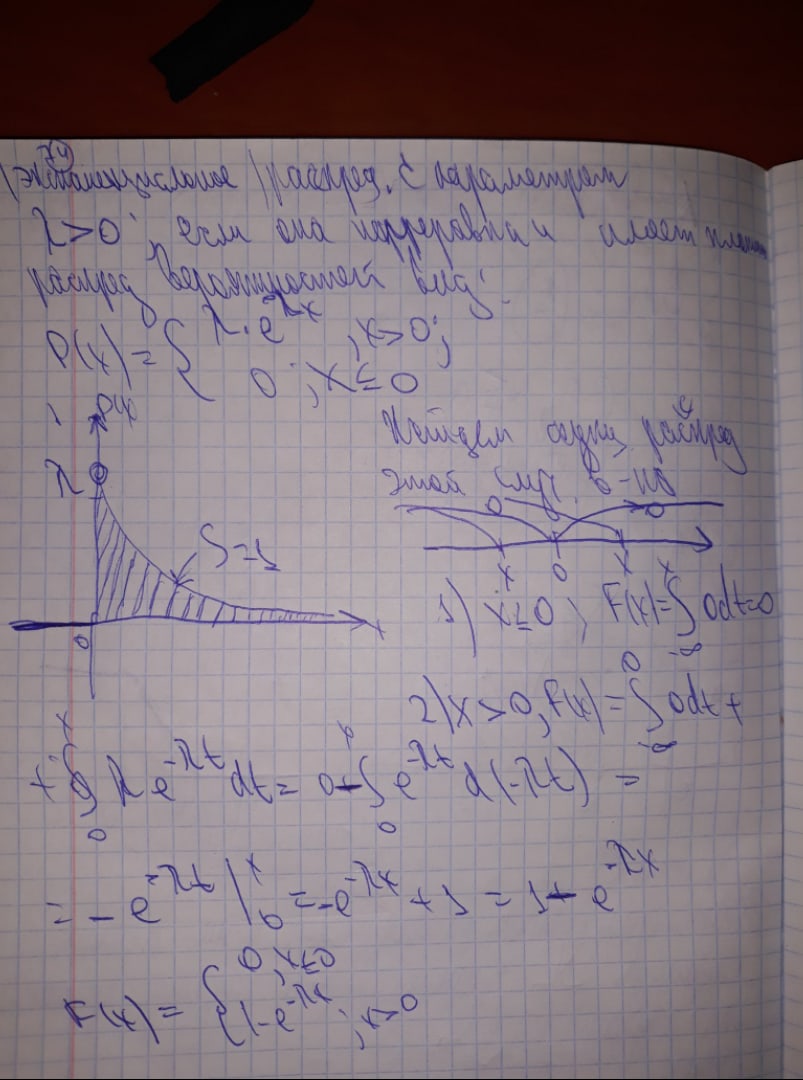 74
экспоненциальное распред. с параметром
λ>0, если она непрерывна и имеет
распред вероятностей вид:
P(x) = { λ·e^-λx , x>0;
0 ; x≤0
P(x)
λ
S=1
0
x
Найдем функ. распред
этой случ. в-ны
x 0 x
1) x≤0; F(x)=∫_{-∞}^{x} 0dt=0
2) x>0, F(x)=∫_{-∞}^{0} 0dt+
+ ∫_{0}^{x} λe^{-λt}dt = 0-∫_{0}^{x} e^{-λt} d(-λt) =
= -e^{-λt} |_{0}^{x} = -e^{-λx} + 1 = 1 - e^{-λx}
F(x) = { 0, x≤0
1-e^{-λx}; x>0